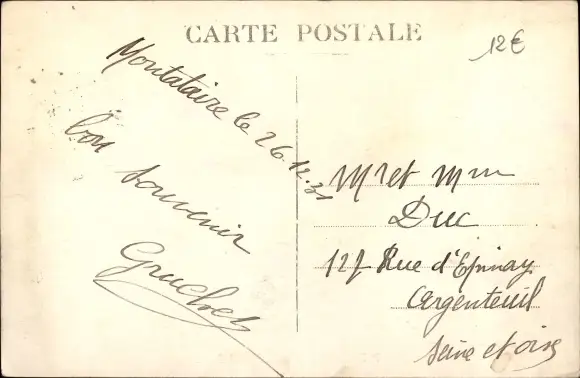 CARTE POSTALE
12€
Montataire le 26.12.31
bon souvenir
Gruchet
Mr et Mm
Duc
127 Rue d'Epinay
Argenteuil
Seine et oise